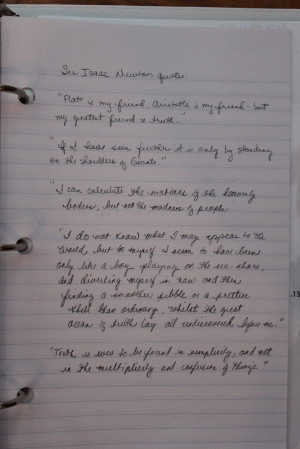 Sir Isaac Newton quotes
"Plato is my friend, Aristotle is my friend but
my greatest friend is truth."
"If I have seen further it is only by standing
on the shoulders of Giants."
"I can calculate the motions of the heavenly
bodies, but not the madness of people
"I do not know what I may appear to the
World, but to myself I seem to have been
only like a boy playing on the sea-shore,
and diverting myself in now and then
finding a smoother pebble or a prettier
shell than ordinary, whilst the great
ocean of truth lay all undiscovered before me."
"Truth is ever to be found in simplicity, and not
in the multiplicity and confusion of things."
.15